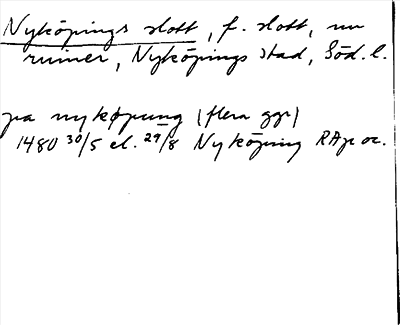 Nyköpings slott, f. slott, nu
ruiner, Nyköpings stad, Söd. l.
pa nykøpung (flera ggr)
1480 30/5 el. 29/8 Nyköping RAp or.